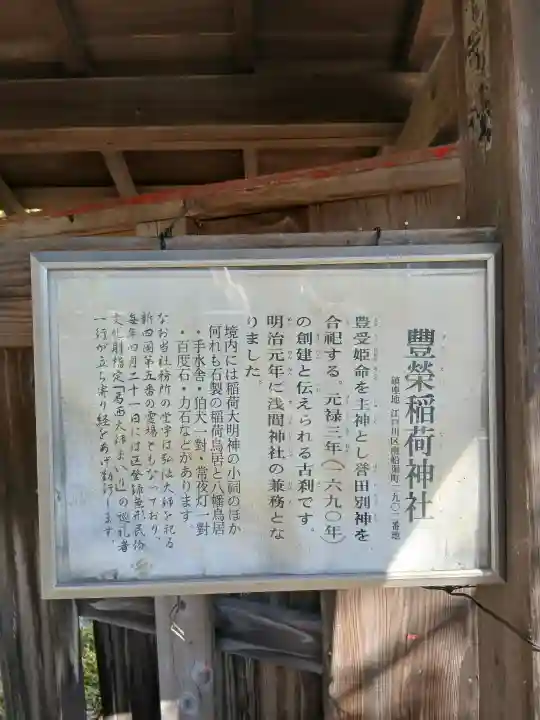 豐榮稲荷神社
鎮座地 江戸川区南船堀町一九〇二番地
豊受姫命を主神とし誉田別神を
合祀する。元禄三年(一六九〇年)
の創建と伝えられる古刹です。
明治元年に浅間神社の兼務とな
りました。
境内には稲荷大明神の小祠のほか
何れも石製の稲荷鳥居と八幡鳥居
・手水舎・狛犬一對・常夜灯一對
・百度石・力石などがあります。
なお当社務所の堂宇は弘法大師を祀る
新四国第五番の霊場でもなっており、
毎年四月二十一日には区登録無形民俗
文化財指定「葛西大師まいり」の巡礼者
一行が立ち寄り経をあげ勤行します。